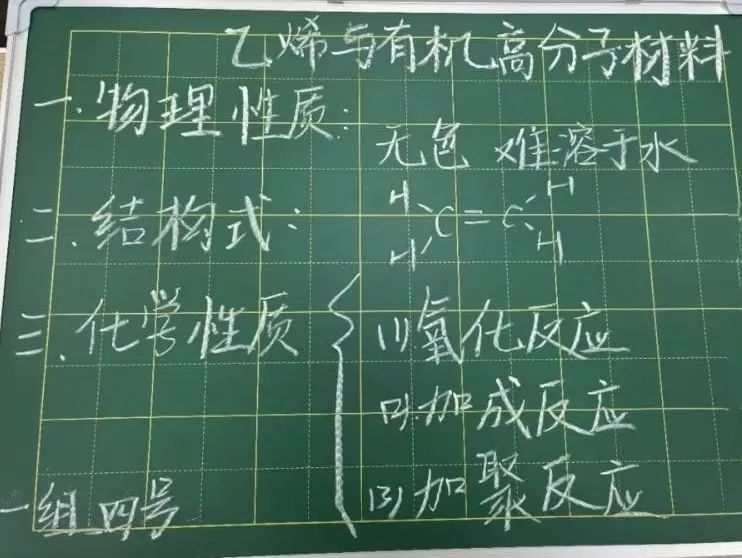 乙烯与有机高分子材料
一.物理性质:
无色 难溶于水
二.结构式:
H H
C=C
H H
三.化学性质
(1)氧化反应
(2)加成反应
(3)加聚反应
一组四号